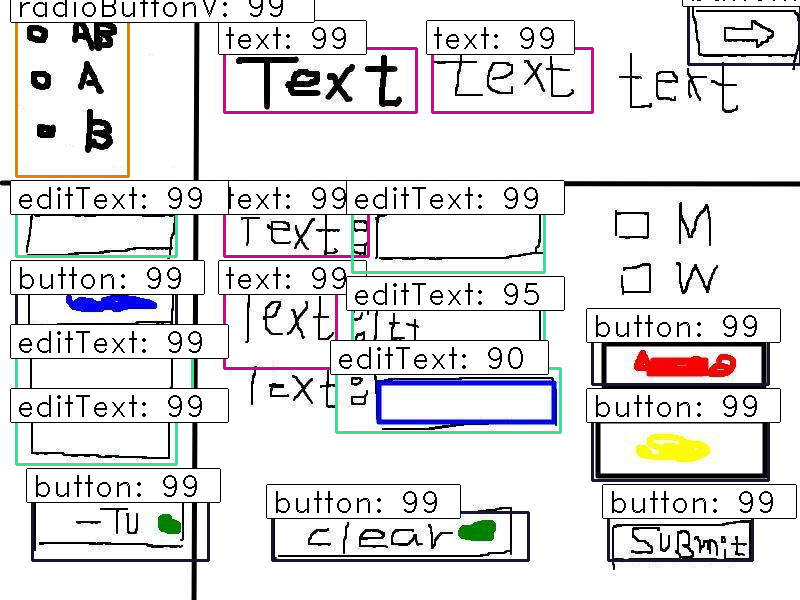 radioButtonV: 99
AB
A
B
text: 99
Text
text: 99
text
text
editText: 99
text: 99
Text
editText: 99
M
W
button: 99
text: 99
Text
editText: 95
button: 99
editText: 99
editText: 90
Text
button: 99
editText: 99
button: 99
-TU
button: 99
clear
button: 99
SUBmit